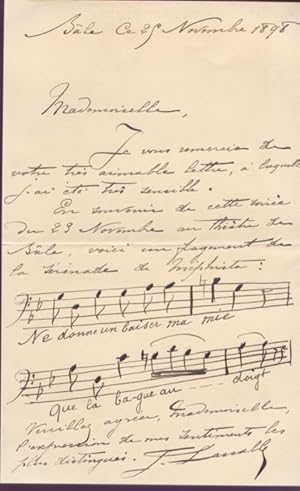 Bâle Ce 25 Novembre 1898
Mademoiselle,
Je vous remercie de
votre très aimable lettre, à laquelle
j'ai été très sensible.
En souvenir de cette soirée
du 23 Novembre au théâtre de
Bâle, voici un fragment de
la sérénade de Mephisto :
Ne donne un baiser ma mie
Que la ba-gue au - - doigt
Veuillez agréer, Mademoiselle,
l'expression de mes sentiments les
plus distingués. J. Lassalle